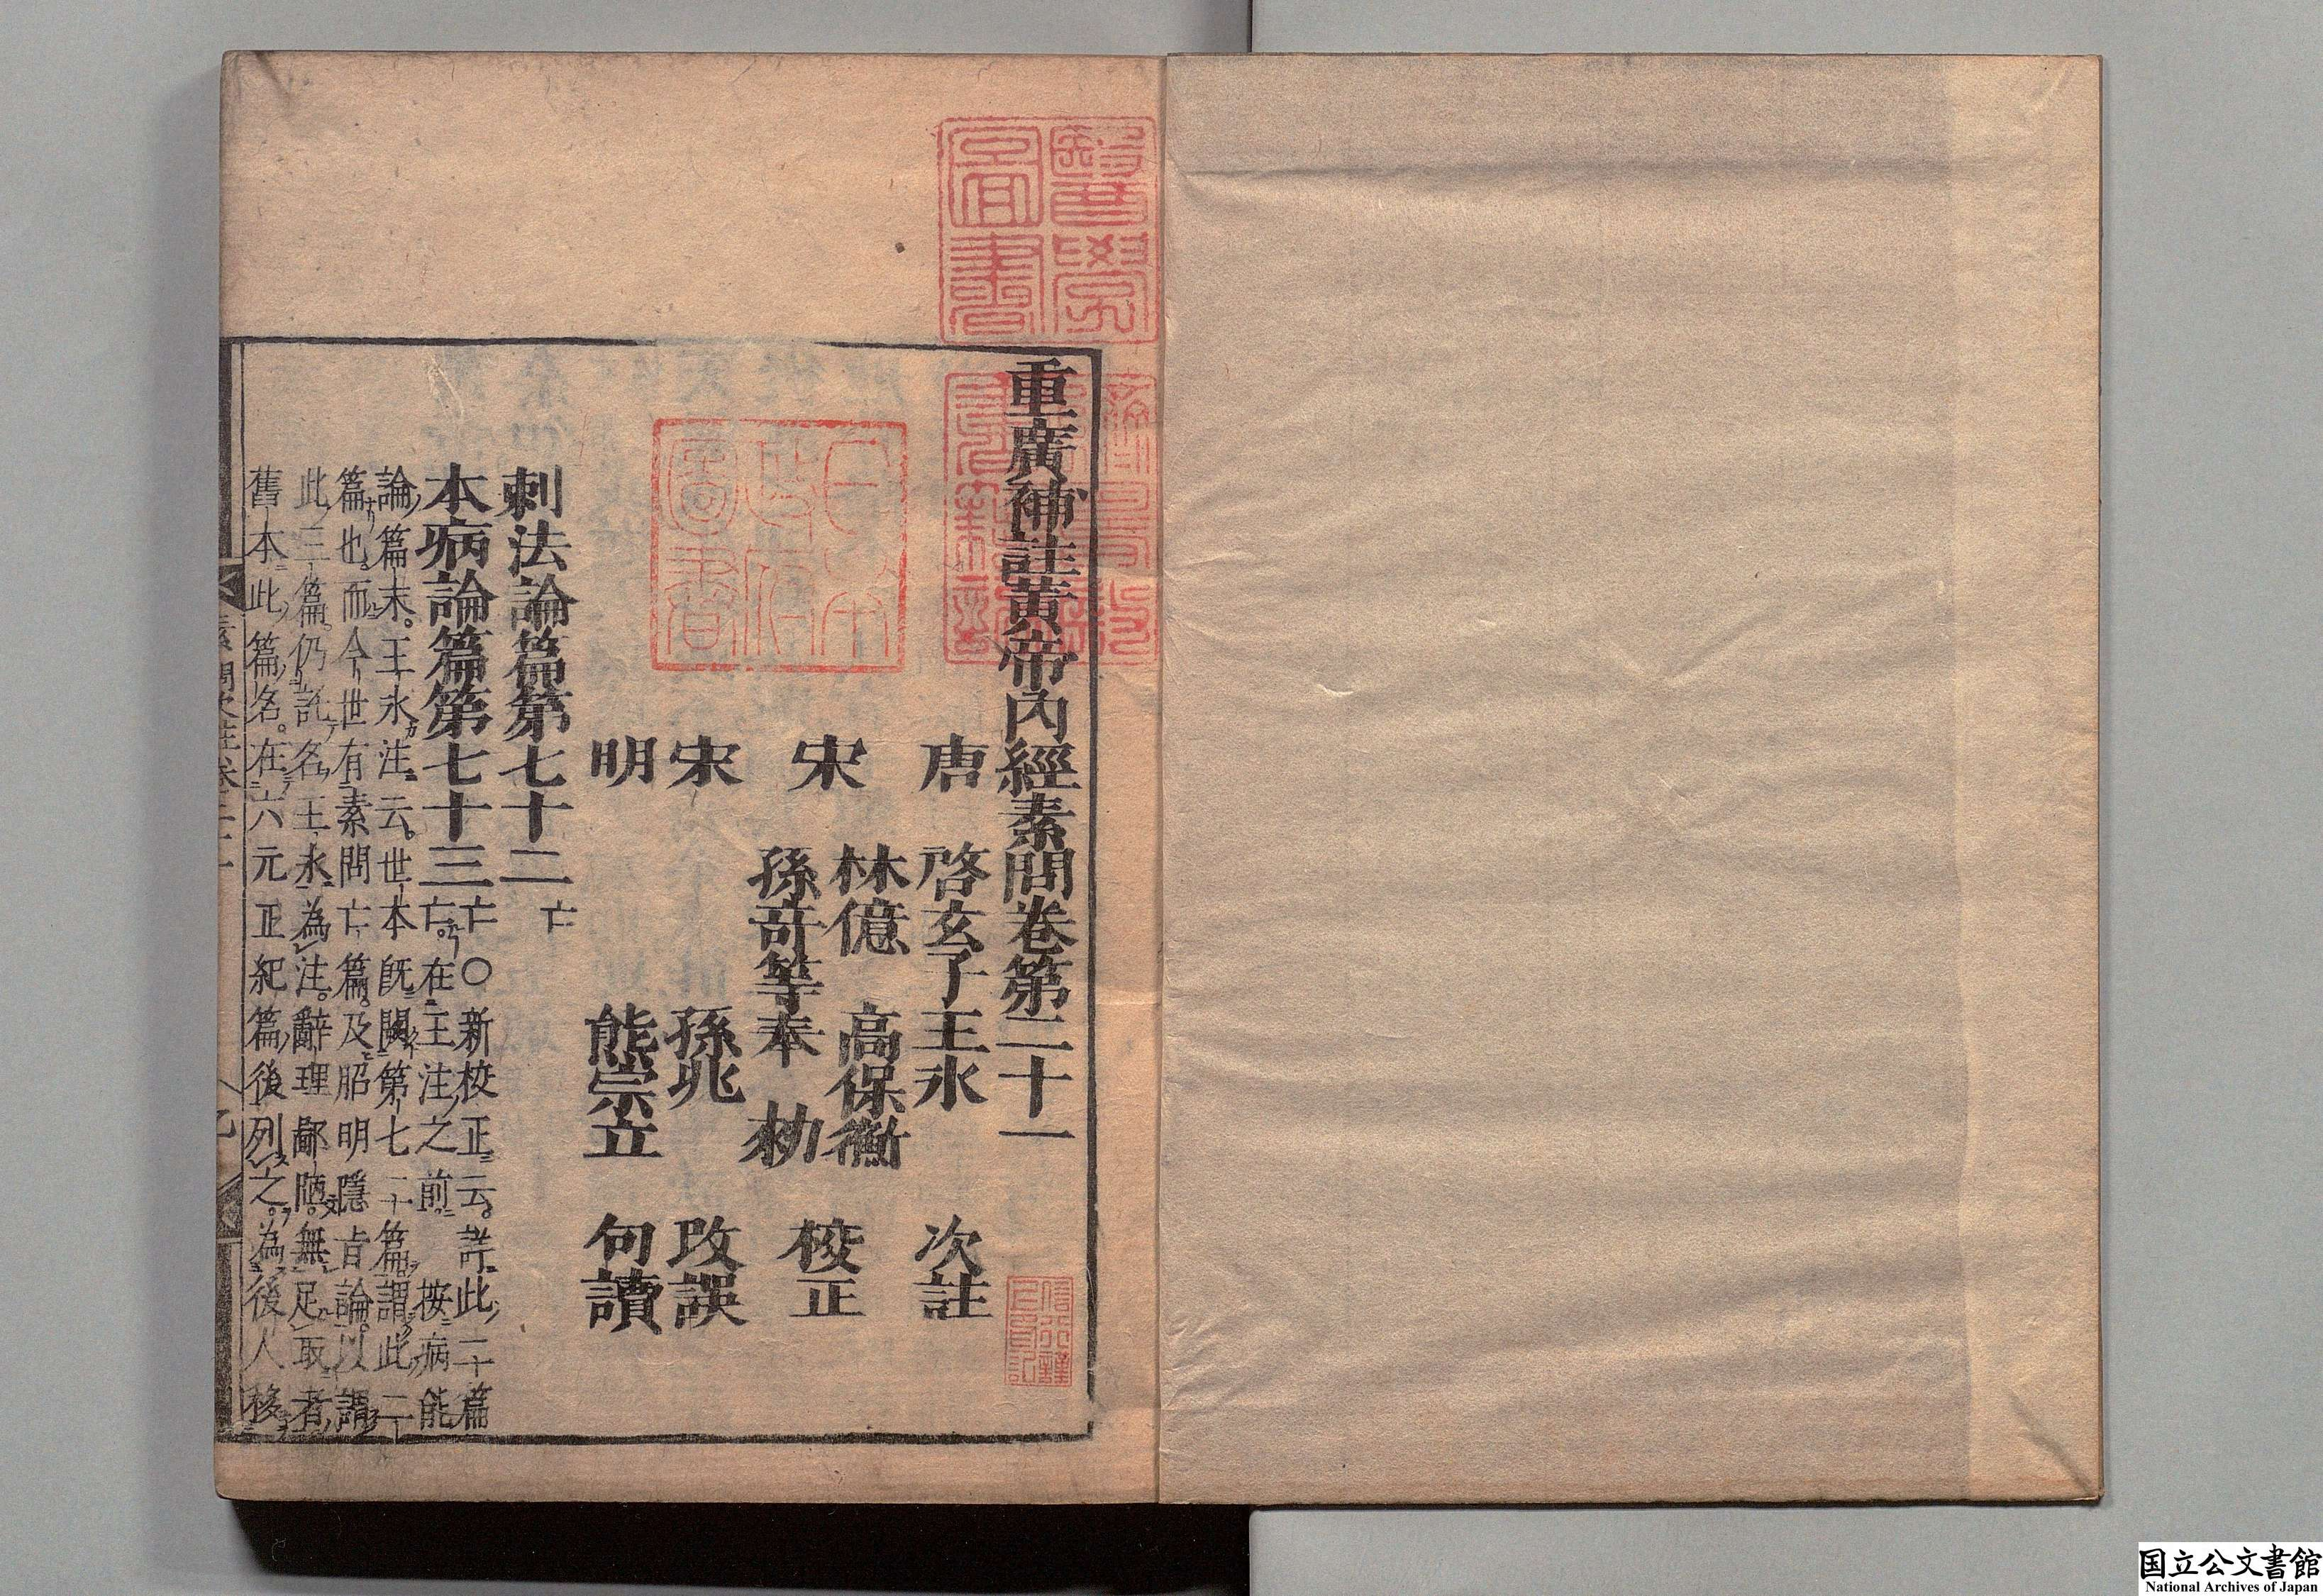 重廣補註黃帝內經素問卷第二十一
唐 啓玄子王氷 次註
宋 林億 高保衡
孫竒等奉 勑 校正
宋 孫兆 攺誤
明 熊宗立 句讀
刺法論篇第七十二 亡
本病論篇第七十三
亡〇新校正云詳此二十篇
亡在王注之前 按病能
論篇末王氷注云世本旣闕第七二十篇謂此二
篇也而今世有素問亡篇及昭明隱旨論以謂
此三篇仍託名王氷為注辭理鄙陋無足取者
舊本此篇名在六元正紀篇後列之為後人移
醫學
圖書
日本
政府
圖書
国立公文書館
National Archives of Japan